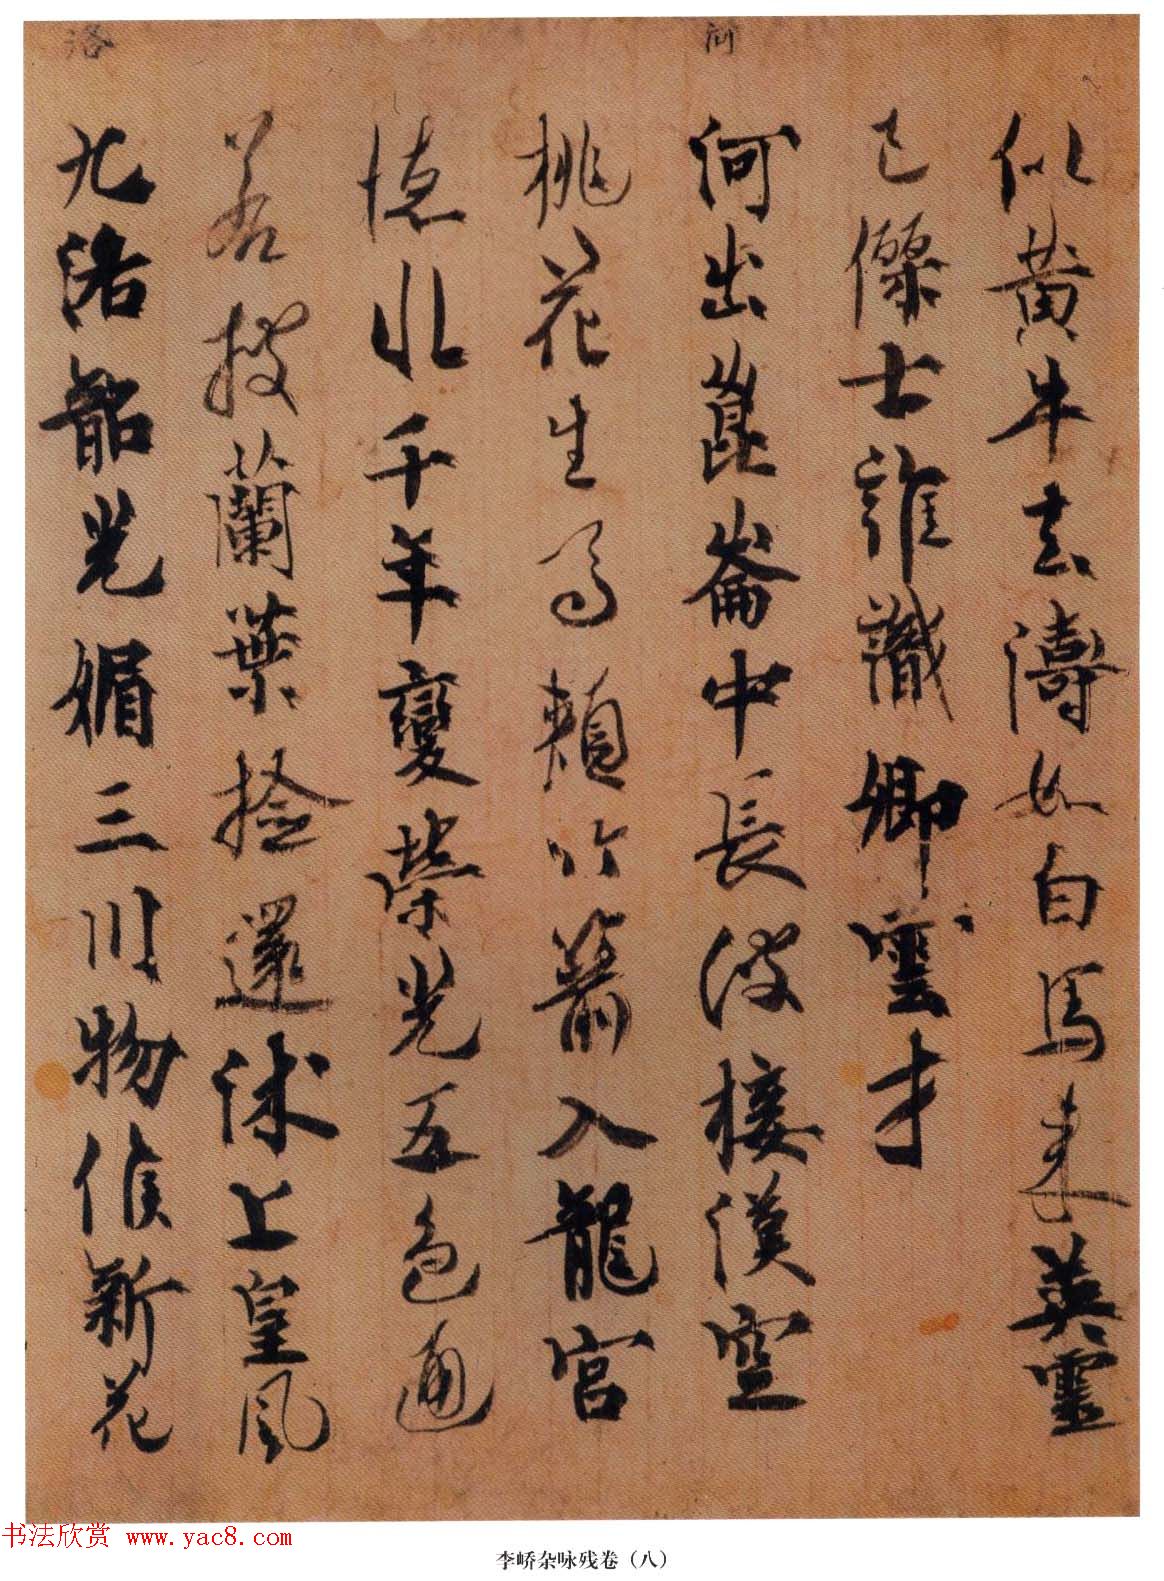 似黄牛去濤如白馬来英靈
已傑士誰識卿雲才
河
河出崑崙中長波接漢空
桃花生馬頬竹箭入龍宮
徳水千年變榮光五色通
若披蘭葉捡還沐上皇風
洛
九洛韶光媚三川物候新花
书法欣赏 www.yac8.com
李峤杂咏残卷（八）